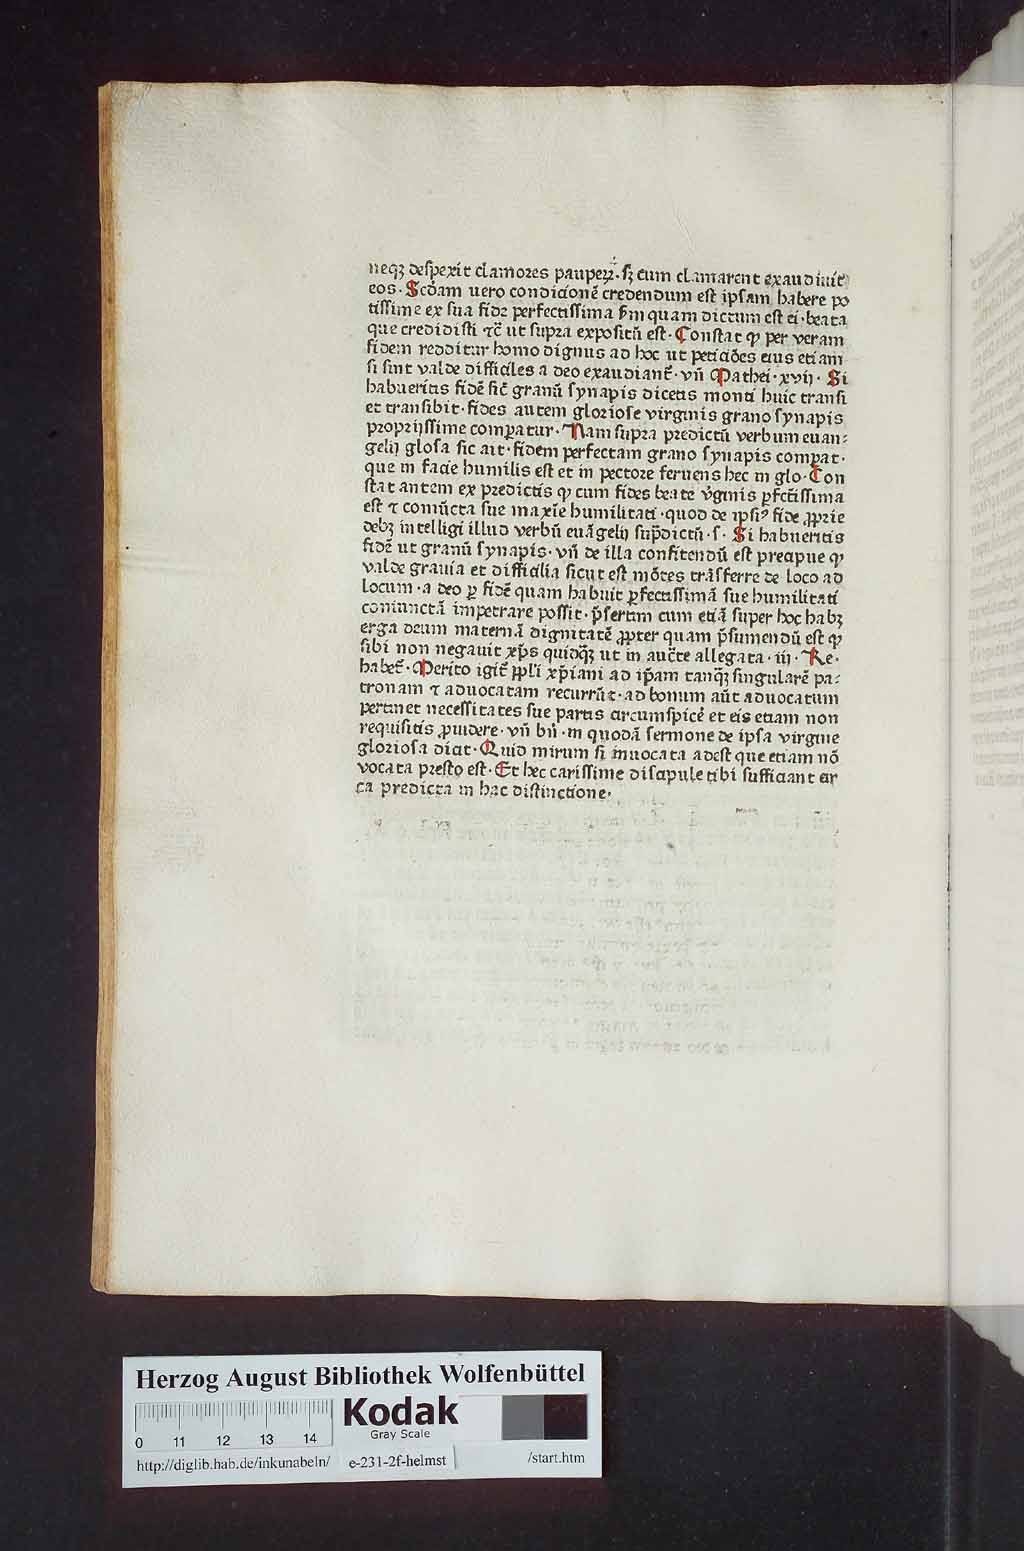 neqꝫ despexit clamores pauperꝝ. sꝫ cum clamarent exaudiuit
eos. Scđam uero condicionē credendum est ipsam habere po
tissime ex sua fide perfectissima scđm quam dictum est ei. beata
que credidisti ⁊c̄ ut supra expositū est. Constat ꝙ per veram
fidem redditur homo dignus ad hoc ut peticiōes eius etiam
si sint valde difficiles a deo exaudiant᷑. vn̄ Mathei. xvij. Si
habueritis fidē sic̄ granū synapis dicetis monti huic transi
et transibit. fides autem gloriose virginis grano synapis
proprijssime comꝑatur. Nam supra predictū verbum euan⸗
gelij glosa sic ait. fidem perfectam grano synapis comꝑat.
que in facie humilis est et in pectore feruens hec in glo. Con
stat autem ex predictis ꝙ cum fides beate v̓ginis ꝑfc̄tissima
est ⁊ comūcta sue maxīe humilitati. quod de ipsiꝰ fide ꝓprie
debꝫ intelligi illud verbū euāgelij sup̄dictū. s. Si habueritis
fidē ut granū synapis. vn̄ de illa confitendū est precipue ꝙ
valde grauia et difficilia sicut est mōtes trāsferre de loco ad
locum. a deo ꝑ fidē quam habuit ꝑfectissimā sue humilitati
coniunctā impetrare possit. p̄sertim cum etiā super hoc habꝫ
erga deum maternā dignitatē ꝓpter quam p̄sumendū est ꝙ
sibi non negauit xp̄s quidqꝫ ut in auc̄te allegata. iij. Re.
habet᷑. Merito igit᷑ ppl̓i xp̄iani ad ip̄am tanqꝫ singularē pa⸗
tronam ⁊ aduocatam recurrūt. ad bonum aūt aduocatum
pertinet necessitates sue partis circumspice̓ et eis etiam non
requisitis ꝓuidere. vn̄ bn̓. in quodā sermone de ipsa virgine
gloriosa dicit. Quid mirum si inuocata adest que etiam nō
vocata presto est. Et hec carissime discipule tibi sufficiant cir
ca predicta in hac distinctione.
Herzog August Bibliothek Wolfenbüttel
Kodak
Gray Scale
0 11 12 13 14
http://diglib.hab.de/inkunabeln/ e-231-2f-helmst /start.htm